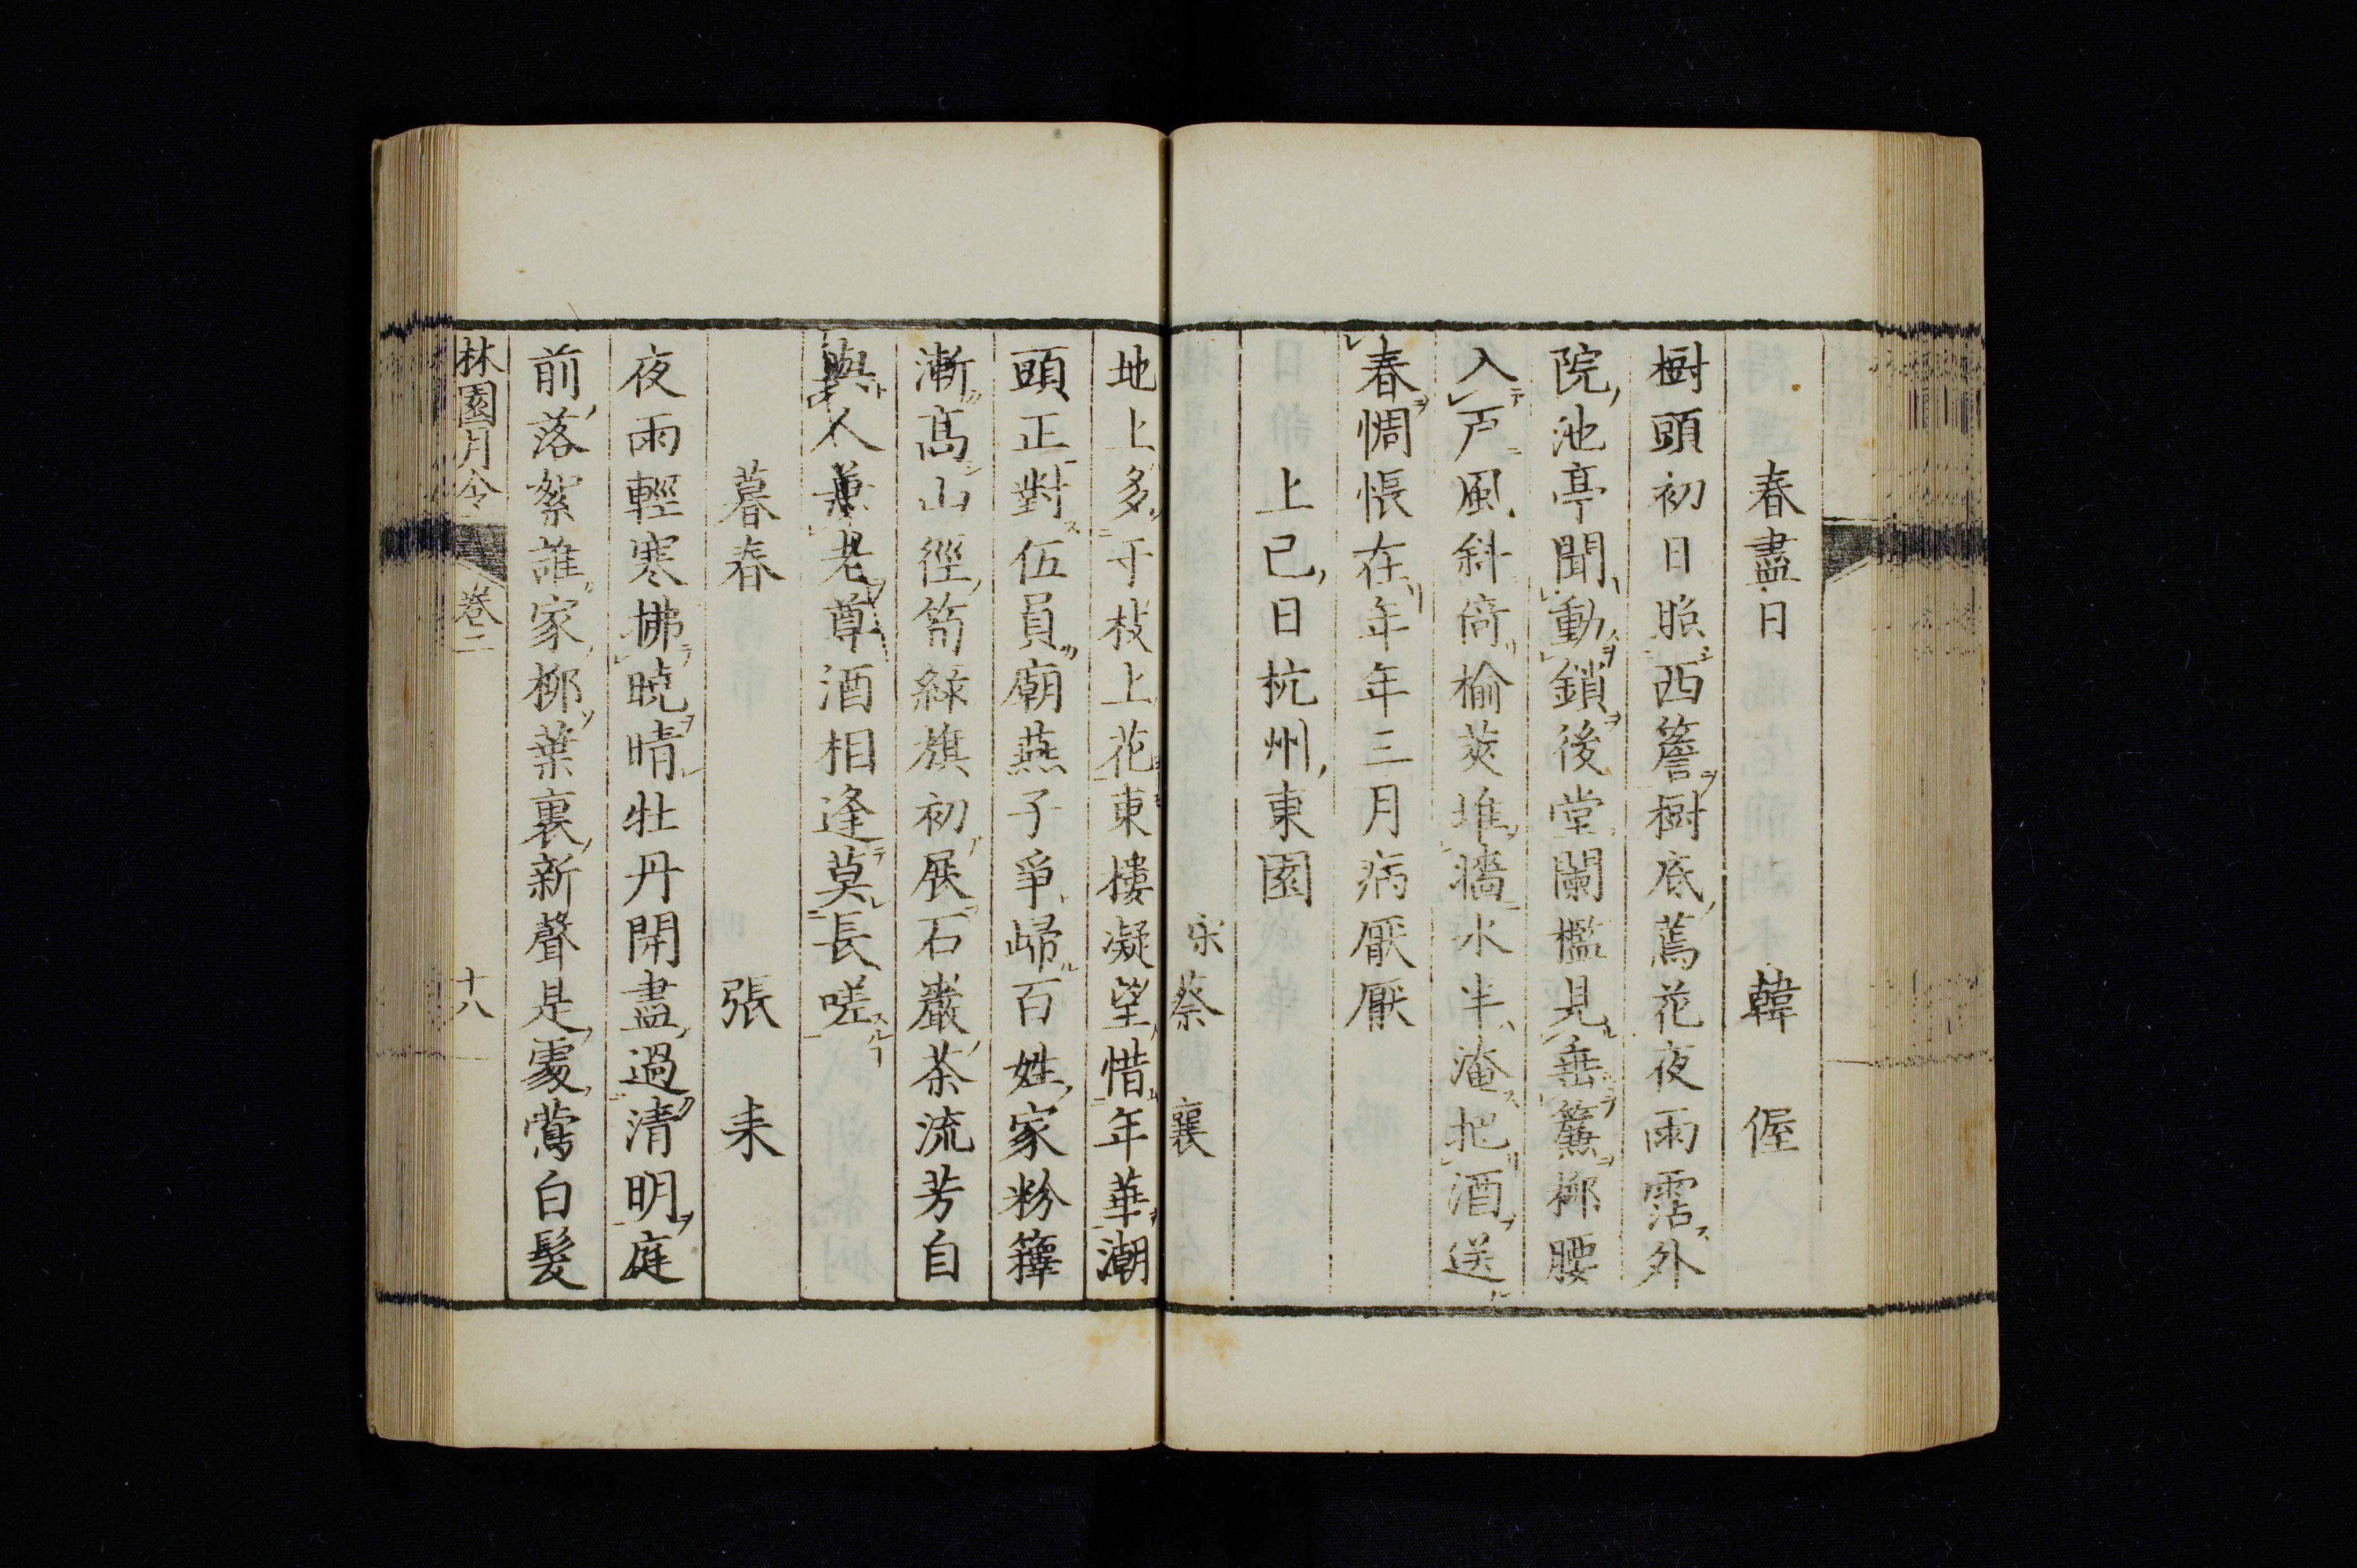 春盡日　韓偓
樹頭初日照西簷樹底蔫花夜雨霑外
院池亭聞動鎖後堂闌檻見垂簾柳腰
入戶風斜倚榆莢堆牆水半淹把酒送
春惆悵在年年三月病厭厭
上已日杭州東園
宋蔡襄
地上多于枝上花東樓凝望惜年華潮
頭正對伍員廟燕子爭歸百姓家粉籜
漸高山徑筍綠旗初展石巖茶流芳自
與人兼老尊酒相逢莫長嗟
暮春　張耒
夜雨輕寒拂曉晴牡丹開盡過清明庭
前落絮誰家柳葉裏新聲是處鶯白髮
林園月令　卷二　十八